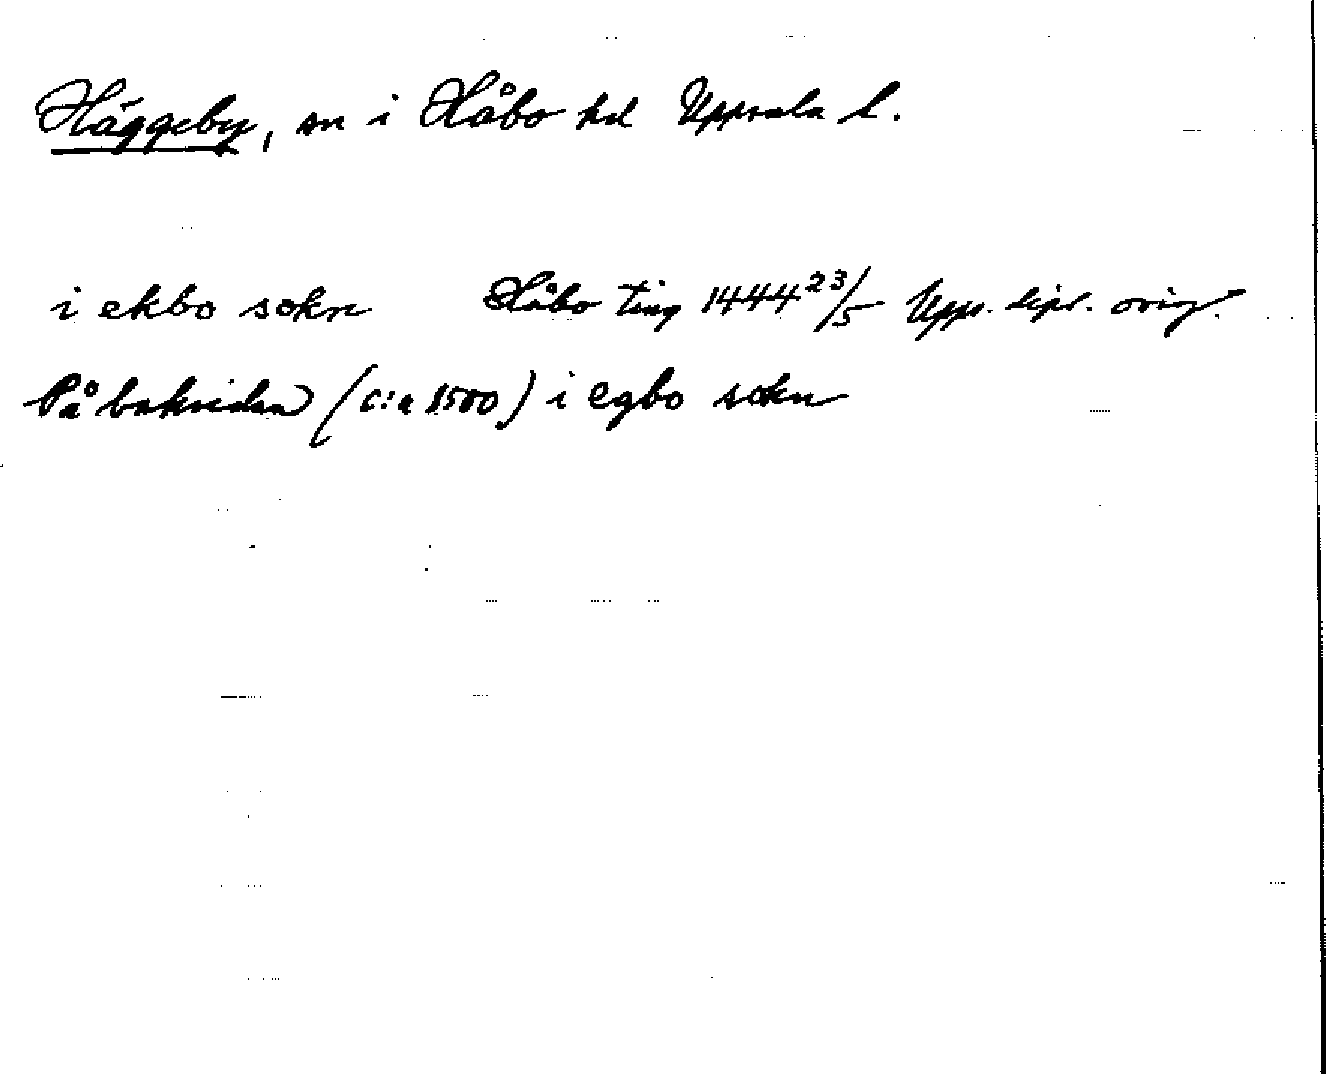 Häggeby, sn i Håbo hd Uppsala l.
i ekbo sokn Håbo ting 1444 23/5 Upps. dipl. orig.
På baksidan (c:a 1500) i egbo sokn